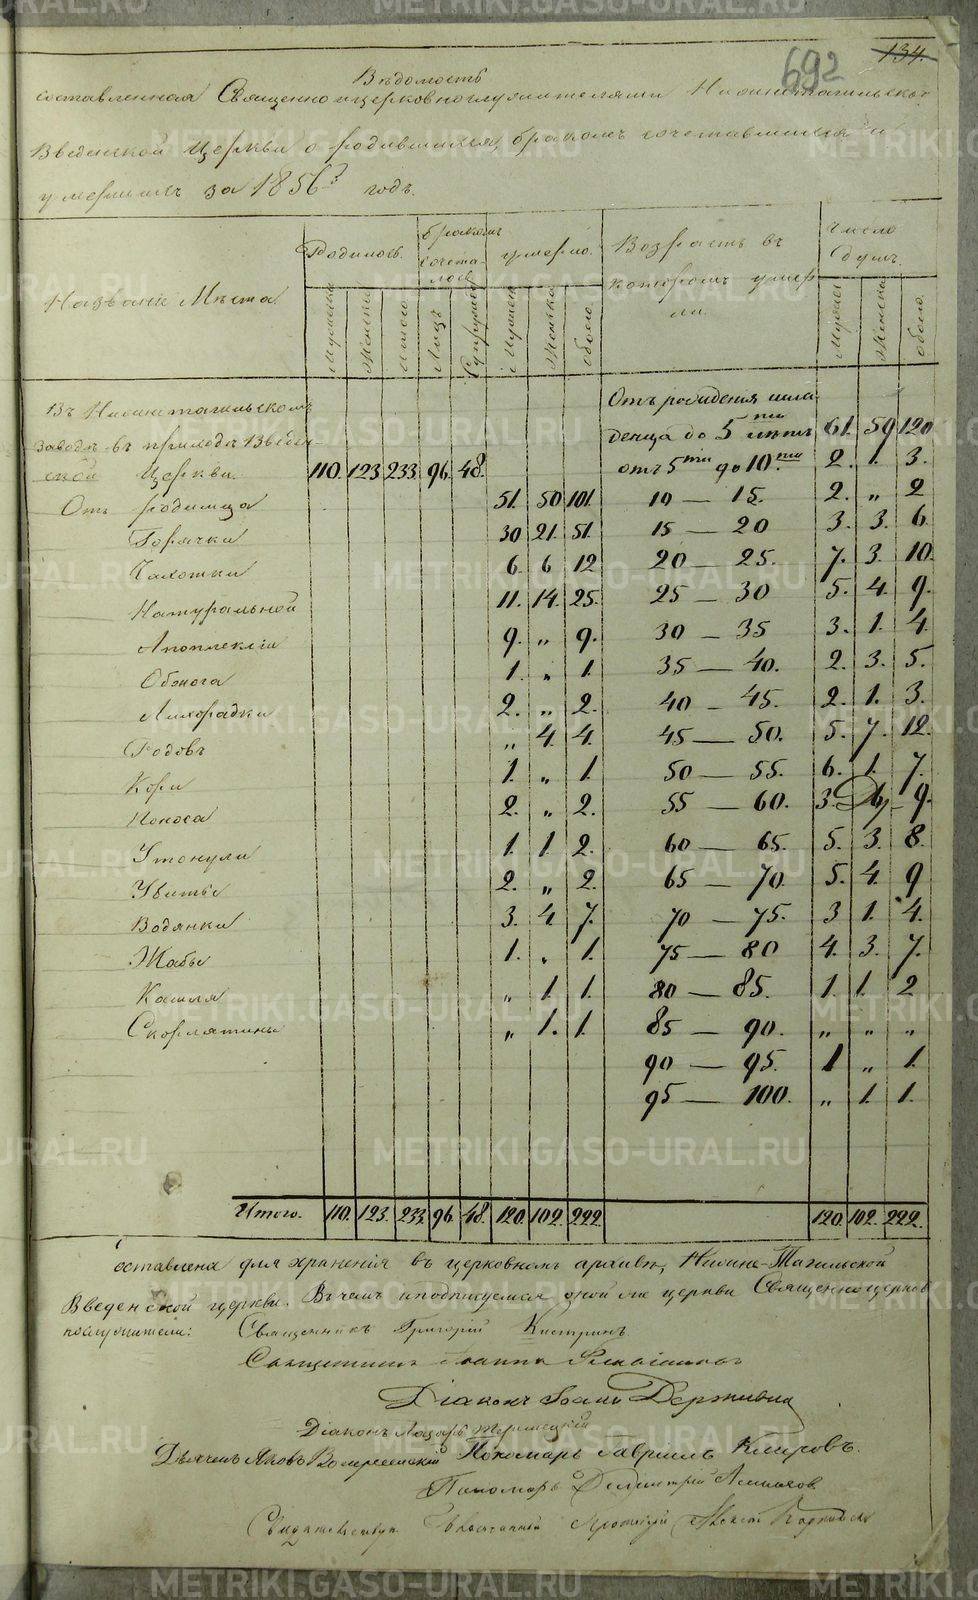 134.
692
Вѣдомость
составленная Священноцерковнослужителями Нижнетагильской
Введенской Церкви о родившихся бракомъ сочетавшихся и
умершихъ за 1856й годъ.
Названіе Мѣста. Родилось. бракомъ сочеталось умерло. Возрастъ въ которомъ умерли. Число душъ.
Мужеска Женска Обоего Лицъ Супружествъ Мужеска Женска обоего Мужеска Женска обоего.
Въ Нижнетагильскомъ Отъ рожденія мла-
заводѣ въ приходѣ Введен- денца до 5ти лѣтъ 61. 59 120
ской Церкви. 110. 123 233. 96. 48. отъ 5ти до 10ти 2. 1. 3.
Отъ родимца 51. 50 101. 10 — 15. 2. „ 2
Горячки 30 21. 51. 15 — 20 3. 3. 6.
Чахотки 6. 6 12 20 — 25. 7. 3. 10.
Натуральной 11. 14. 25. 25 — 30 5. 4. 9.
Апоплексіи 9. „ 9. 30 — 35 3. 1. 4.
1. „ 1. 35 — 40. 2. 3. 5.
Лихорадки 2. „ 2. 40 — 45. 2. 1. 3.
Родовъ „ 4. 4. 45 — 50. 5. 7. 12.
Кори 1. „ 1. 50 — 55. 6. 1. 7.
Поноса 2. „ 2. 55 — 60. 3. 9.
Утонули 1. 1. 2. 60 — 65. 5. 3. 8.
Убитые 2. „ 2. 65 — 70. 5. 4. 9
Водянки 3. 4. 7. 70 — 75. 3 1. 4.
Жабы 1. „ 1. 75 — 80 4. 3. 7.
Кашля „ 1. 1. 80 — 85. 1. 1. 2
Скорлятины „ 1. 1. 85 — 90. „ „ „
90 — 95. 1 „ 1.
95 — 100. „ 1. 1.
Итого. 110. 123. 233. 96. 48. 120. 102. 222. 120. 102. 222.
Составлена для храненія въ церковномъ архивѣ, Нижне-Тагильской
Введенской церкви. Въ чемъ и подписуемся оной же церкви Священноцерков-
нослужители: Священникъ Григорій
Священникъ Іоаннъ
Діаконъ Іоаннъ Державинъ
Діаконъ Лазарь
Дьячекъ Яковъ Пономарь Гавріилъ Кипровъ.
Пономарь Димитрій
Протоіерей
METRIKI.GASO-URAL.RU